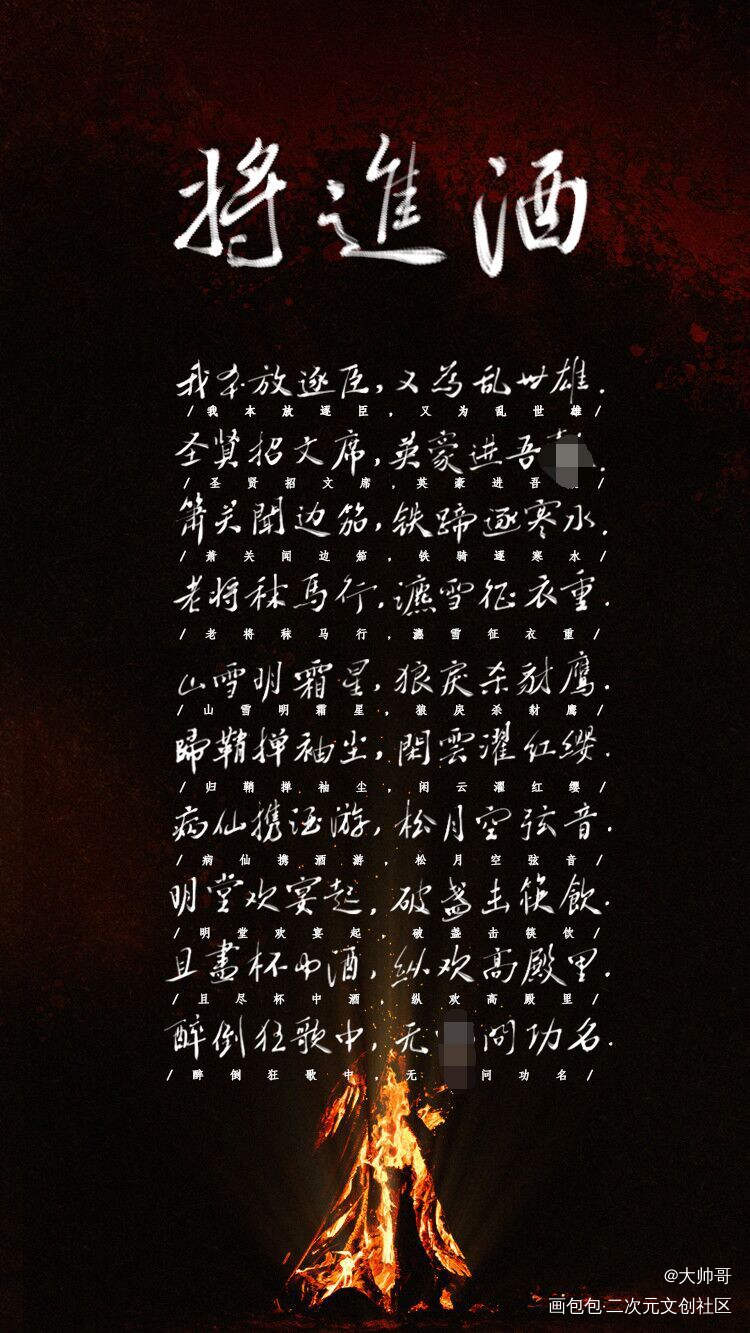 将進酒
我本放逐臣，又為乱世雄.
/我本放逐臣，又为乱世雄/
圣賢招文席，英豪进吾.
/圣贤招文席，英豪进吾/
箫关聞边笳，铁蹄逐寒水.
/萧关闻边笳，铁骑逐寒水/
老将秣馬行.瀌雪征衣重.
/老将秣马行，瀌雪征衣重/
山雪明霜星，狼戾杀豺鷹.
/山雪明霜星，狼戾杀豺鹰/
歸鞘掸袖尘，閑雲濯红缨.
/归鞘掸袖尘，闲云濯红缨/
病仙携酒游，松月空弦音.
/病仙携酒游，松月空弦音/
明堂欢宴起，破盏击筷飲.
/明堂欢宴起，破盏击筷饮/
且盡杯中酒，纵欢高殿里.
/且尽杯中酒，纵欢高殿里/
醉倒狂歌中，无问功名.
/醉倒狂歌中，无问功名/
@大帅哥
画包包·二次元文创社区